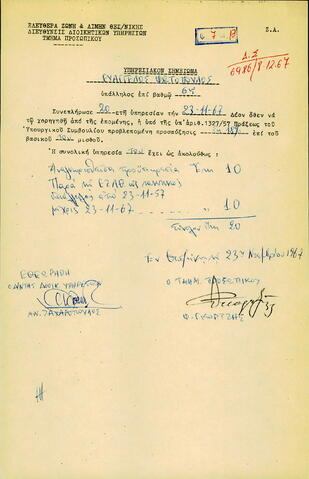 ΕΛΕΥΘΕΡΑ ΖΩΝΗ & ΛΙΜΗΝ ΘΕΣ/ΝΙΚΗΣ
ΔΙΕΥΘΥΝΣΙΣ ΔΙΟΙΚΗΤΙΚΩΝ ΥΠΗΡΕΣΙΩΝ
ΤΜΗΜΑ ΠΡΟΣΩΠΙΚΟΥ
Σ.Α.
Δ.Σ
6986/8.12.67
ΥΠΗΡΕΣΙΑΚΟΝ ΣΗΜΕΙΩΜΑ
ΕΥΑΓΓΕΛΟΣ ΦΩΤΟΠΟΥΛΟΣ
ὑπάλληλος ἐπί βαθμῷ 6ῳ
Συνεπλήρωσε 20 ετῆ ὑπηρεσίαν τήν 23-11-67. Δέον ὅθεν νά
τῷ χορηγηθῇ ἀπό τῆς ἑπομένης, ἡ ὑπό τῆς ὑπ'ἀριθ.1327/57 Πράξεως τοῦ
Ὑπουργικοῦ Συμβουλίου προβλεπομένη προσαύξησις ἐπί τοῦ
βασικοῦ του μισθοῦ.
Ἡ συνολική ὑπηρεσία του ἔχει ὡς ἀκολούθως :
Ἀναγνωρισθεῖσα προϋπηρεσία Ἔτη 10
Παρά τῇ ΕΖΛΘ ὡς
ὑπάλληλος ἀπό 23-11-57
μέχρις 23-11-67 10
Σύνολον ἔτη 20
Ἐν Θεσ/νίκῃ τῇ 23ῃ Νοεμβρίου 1967
ΕΘΕΩΡΗΘΗ
Ο ΔΝΤΗΣ ΔΙΟΙΚ. ΥΠΗΡΕΣΙΩΝ
ΑΝ. ΖΑΧΑΡΟΠΟΥΛΟΣ
Ο ΤΜΗΜ. ΠΡΟΣΩΠΙΚΟΥ
Φ. ΓΚΟΡΤΖΗΣ